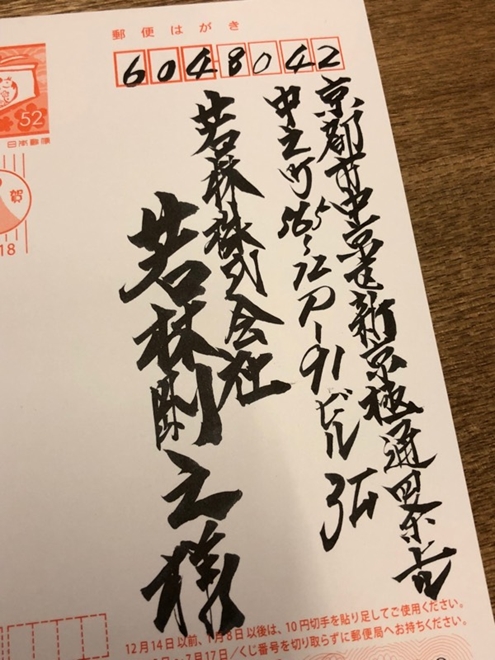 郵便はがき
6048042
京都市中京区新京極通四条上
中之町565-12
ビル
若林株式会社
若林剛之様
52
日本郵便
賀
18
12月14日以前、1月8日以後は、10円切手を貼り足してご使用ください。
7月17日/くじ番号を切り取らずに郵便局へお持ちください。